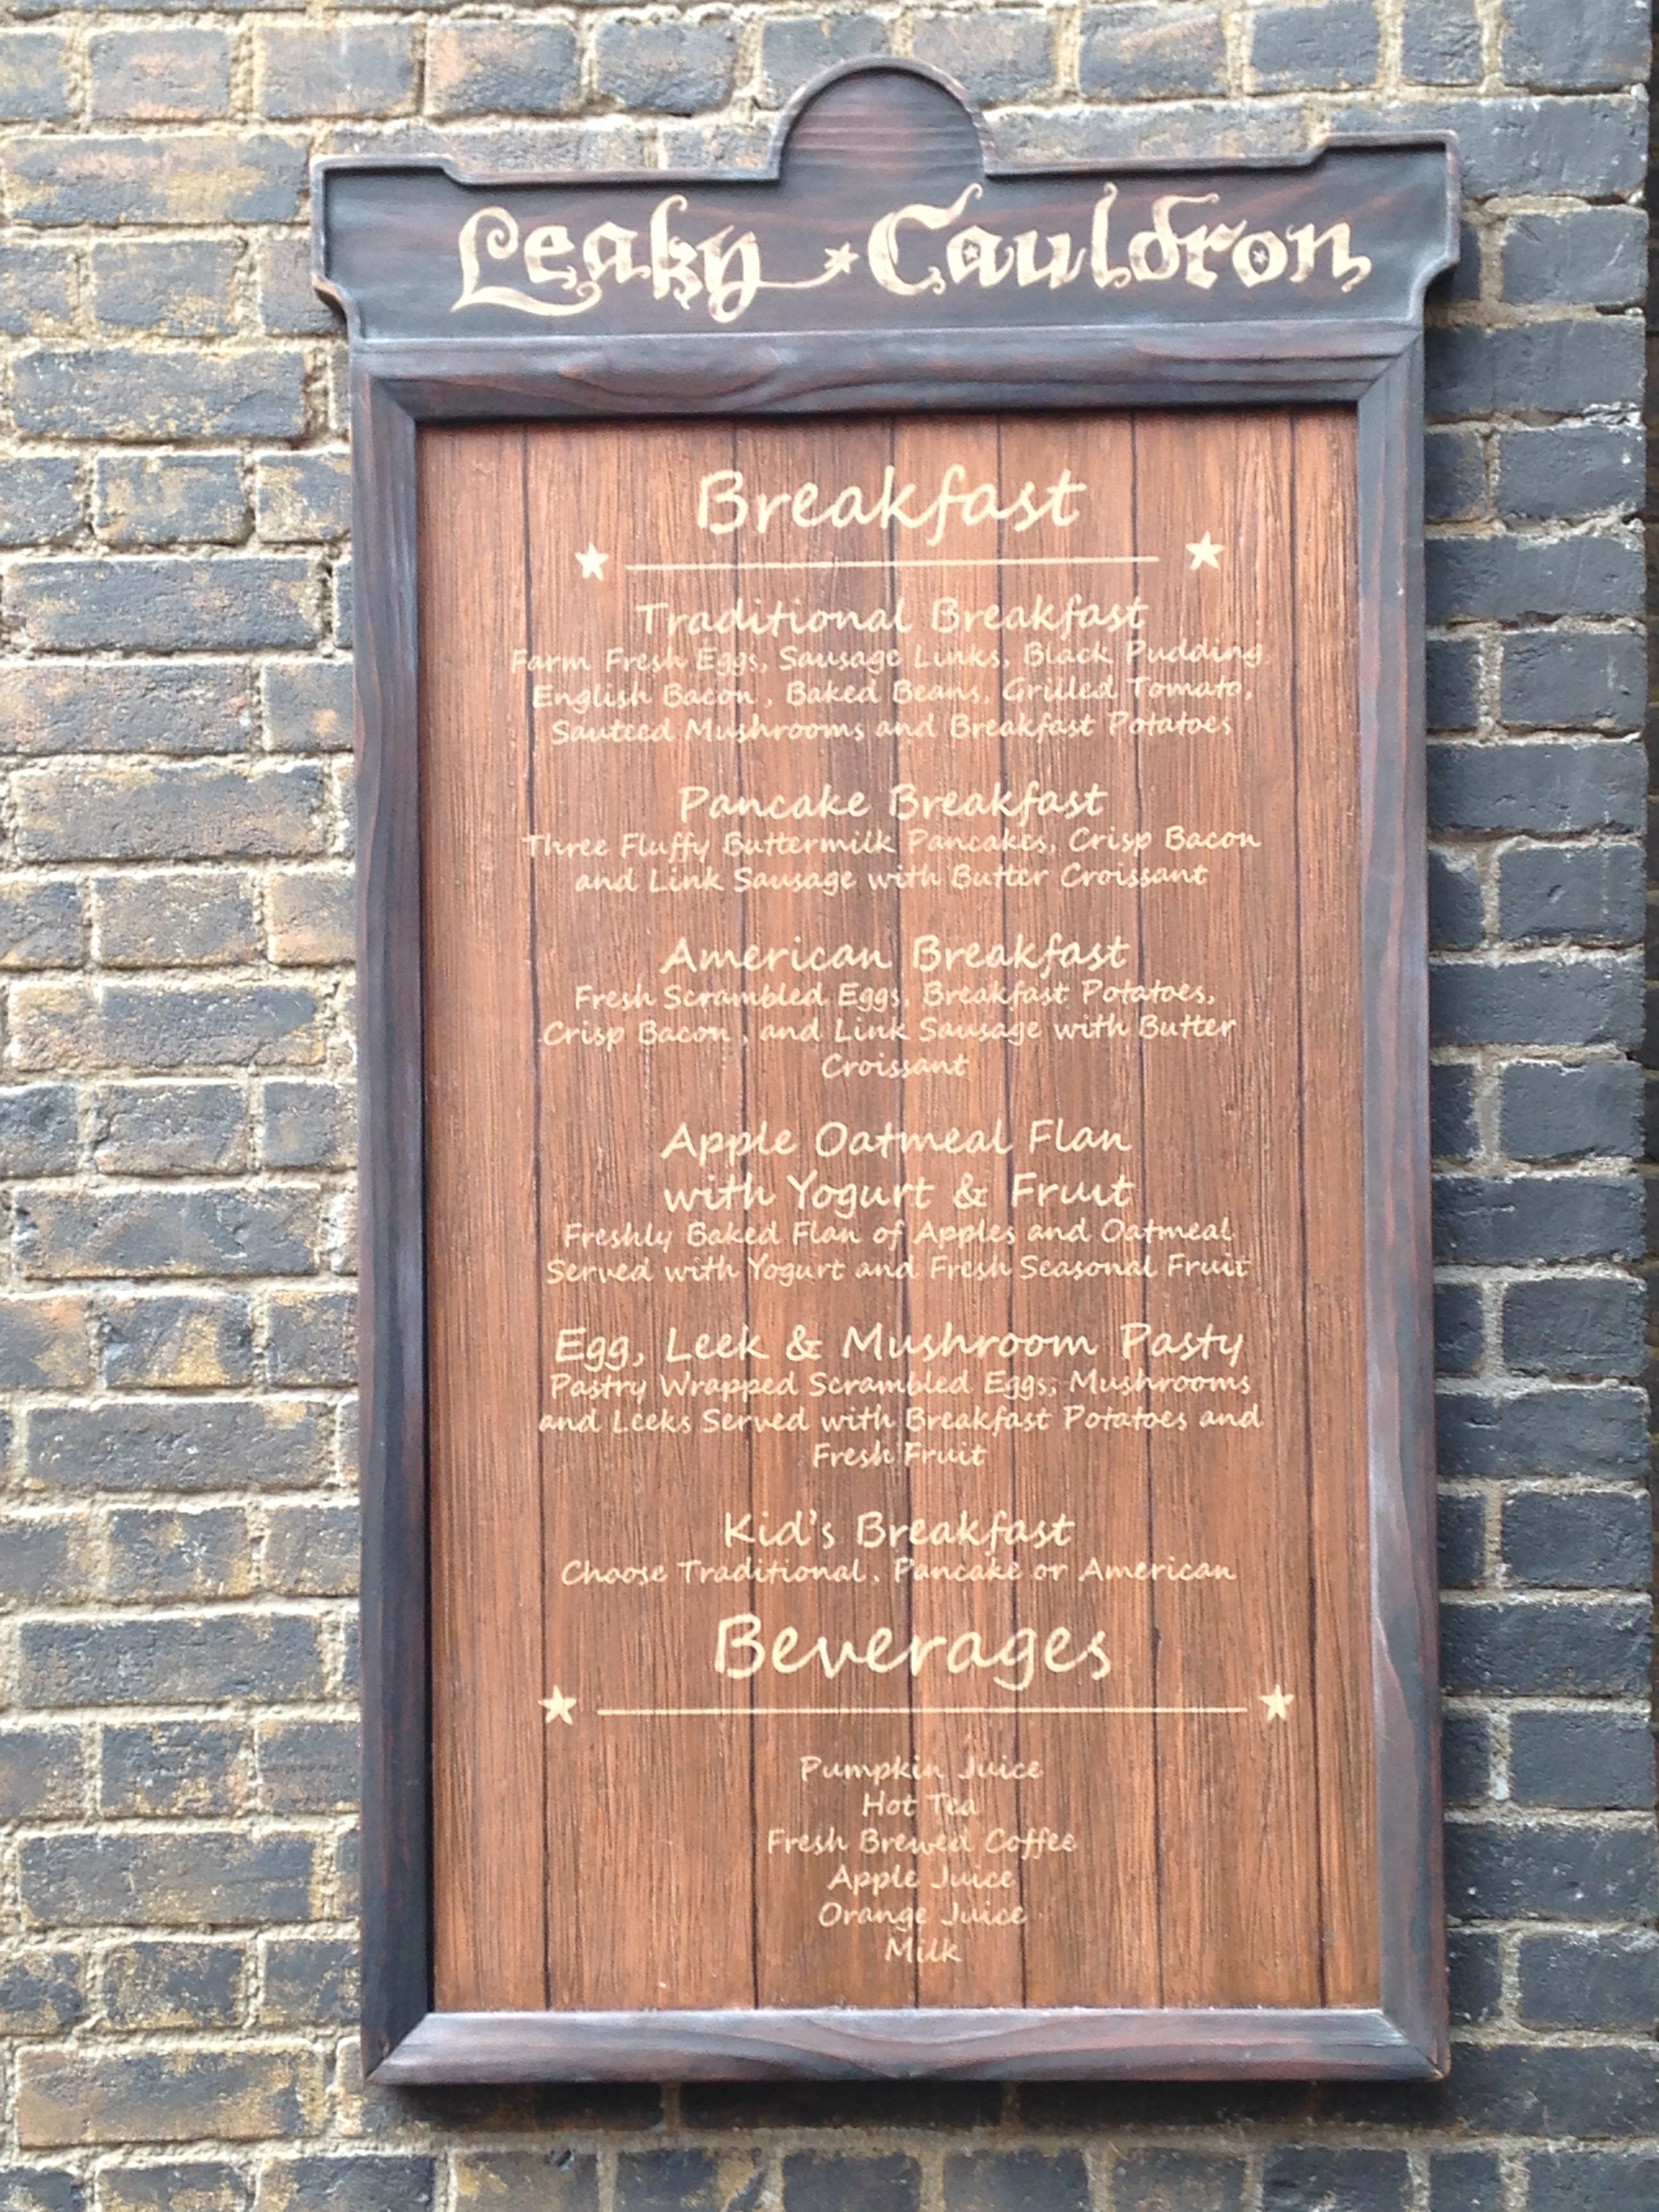 Leaky Cauldron
Breakfast
Traditional Breakfast
Farm Fresh Eggs, Sausage Links, Black Pudding
English Bacon, Baked Beans, Grilled Tomato,
Sauteed Mushrooms and Breakfast Potatoes
Pancake Breakfast
Three Fluffy Buttermilk Pancakes, Crisp Bacon
and Link Sausage with Butter Croissant
American Breakfast
Fresh Scrambled Eggs, Breakfast Potatoes,
Crisp Bacon, and Link Sausage with Butter
Croissant
Apple Oatmeal Flan
with Yogurt & Fruit
Freshly Baked Flan of Apples and Oatmeal
Served with Yogurt and Fresh Seasonal Fruit
Egg, Leek & Mushroom Pasty
Pastry Wrapped Scrambled Eggs, Mushrooms
and Leeks Served with Breakfast Potatoes and
Fresh Fruit
Kid's Breakfast
Choose Traditional, Pancake or American
Beverages
Pumpkin Juice
Hot Tea
Fresh Brewed Coffee
Apple Juice
Orange Juice
Milk